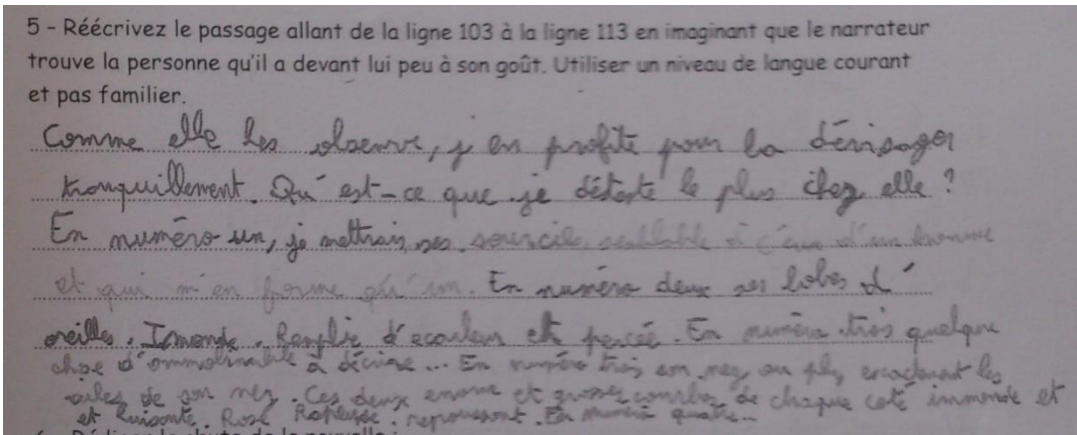 5 - Réécrivez le passage allant de la ligne 103 à la ligne 113 en imaginant que le narrateur
trouve la personne qu'il a devant lui peu à son goût. Utiliser un niveau de langue courant
et pas familier.
Comme elle les observe, j'en profite pour la dévisager
tranquillement. Qu'est-ce que je déteste le plus chez elle ?
En numéro un, je mettrais ses sourcils d'un homme
et qui m'en forme qu'un. En numéro deux ses lobes d'
oreilles. Immonde. et percée. En numéro trois quelque
chose d' à décrire ... En numéro trois son nez ou plus les
ailes de son nez. Ces deux enorme et grosse de chaque coté immonde et
et luisante. Rose repoussant. En numéro quatre...